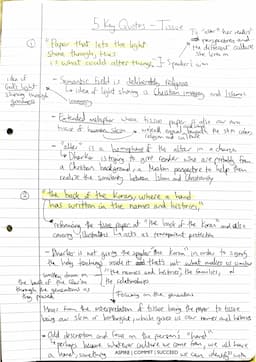 5 Key Quotes - Tissue
To "alter" her readers
perspectives and
the different cultures
she lives in
① "Paper that lets the light
shine through, this
is what could alter things." } Speaker I am
idea of
God's light
shining through
goodness
- Semantic field is deliberately religious
↳ idea of light shining is Christian imagery and Islamic
imagery
- Extended metaphor where tissue paper is also our own
tissue of human skin
religion and culture
- "alter" is a homophone of the altar in a church
↳ Dharker is trying to give reader who are probably from
a Christian background, a Muslim perspective to help them
realise the similarity between Islam and Christianity
② "the back of the Koran, where a hand
has written in the names and histories,"
the tissue paper at "the back of the Koran" and also
↳ acts as transparent protection
- Dharker is not using the
the holy teachings inside it and that's what makes us similar
"the names and histories", the families,
the relationships
the back of the Koran
through the generations as
they passed
↳ Focusing on the generations
Moves from the interpretation of tissue being the paper to tissue
being our skin or birthright, which gives us our names and histories
- Odd description and focus on the person's "hand"
↳ perhaps because whatever culture we come from, we all have
a hand, something we can identify with
ASPIRE | COMMIT | SUCCEED